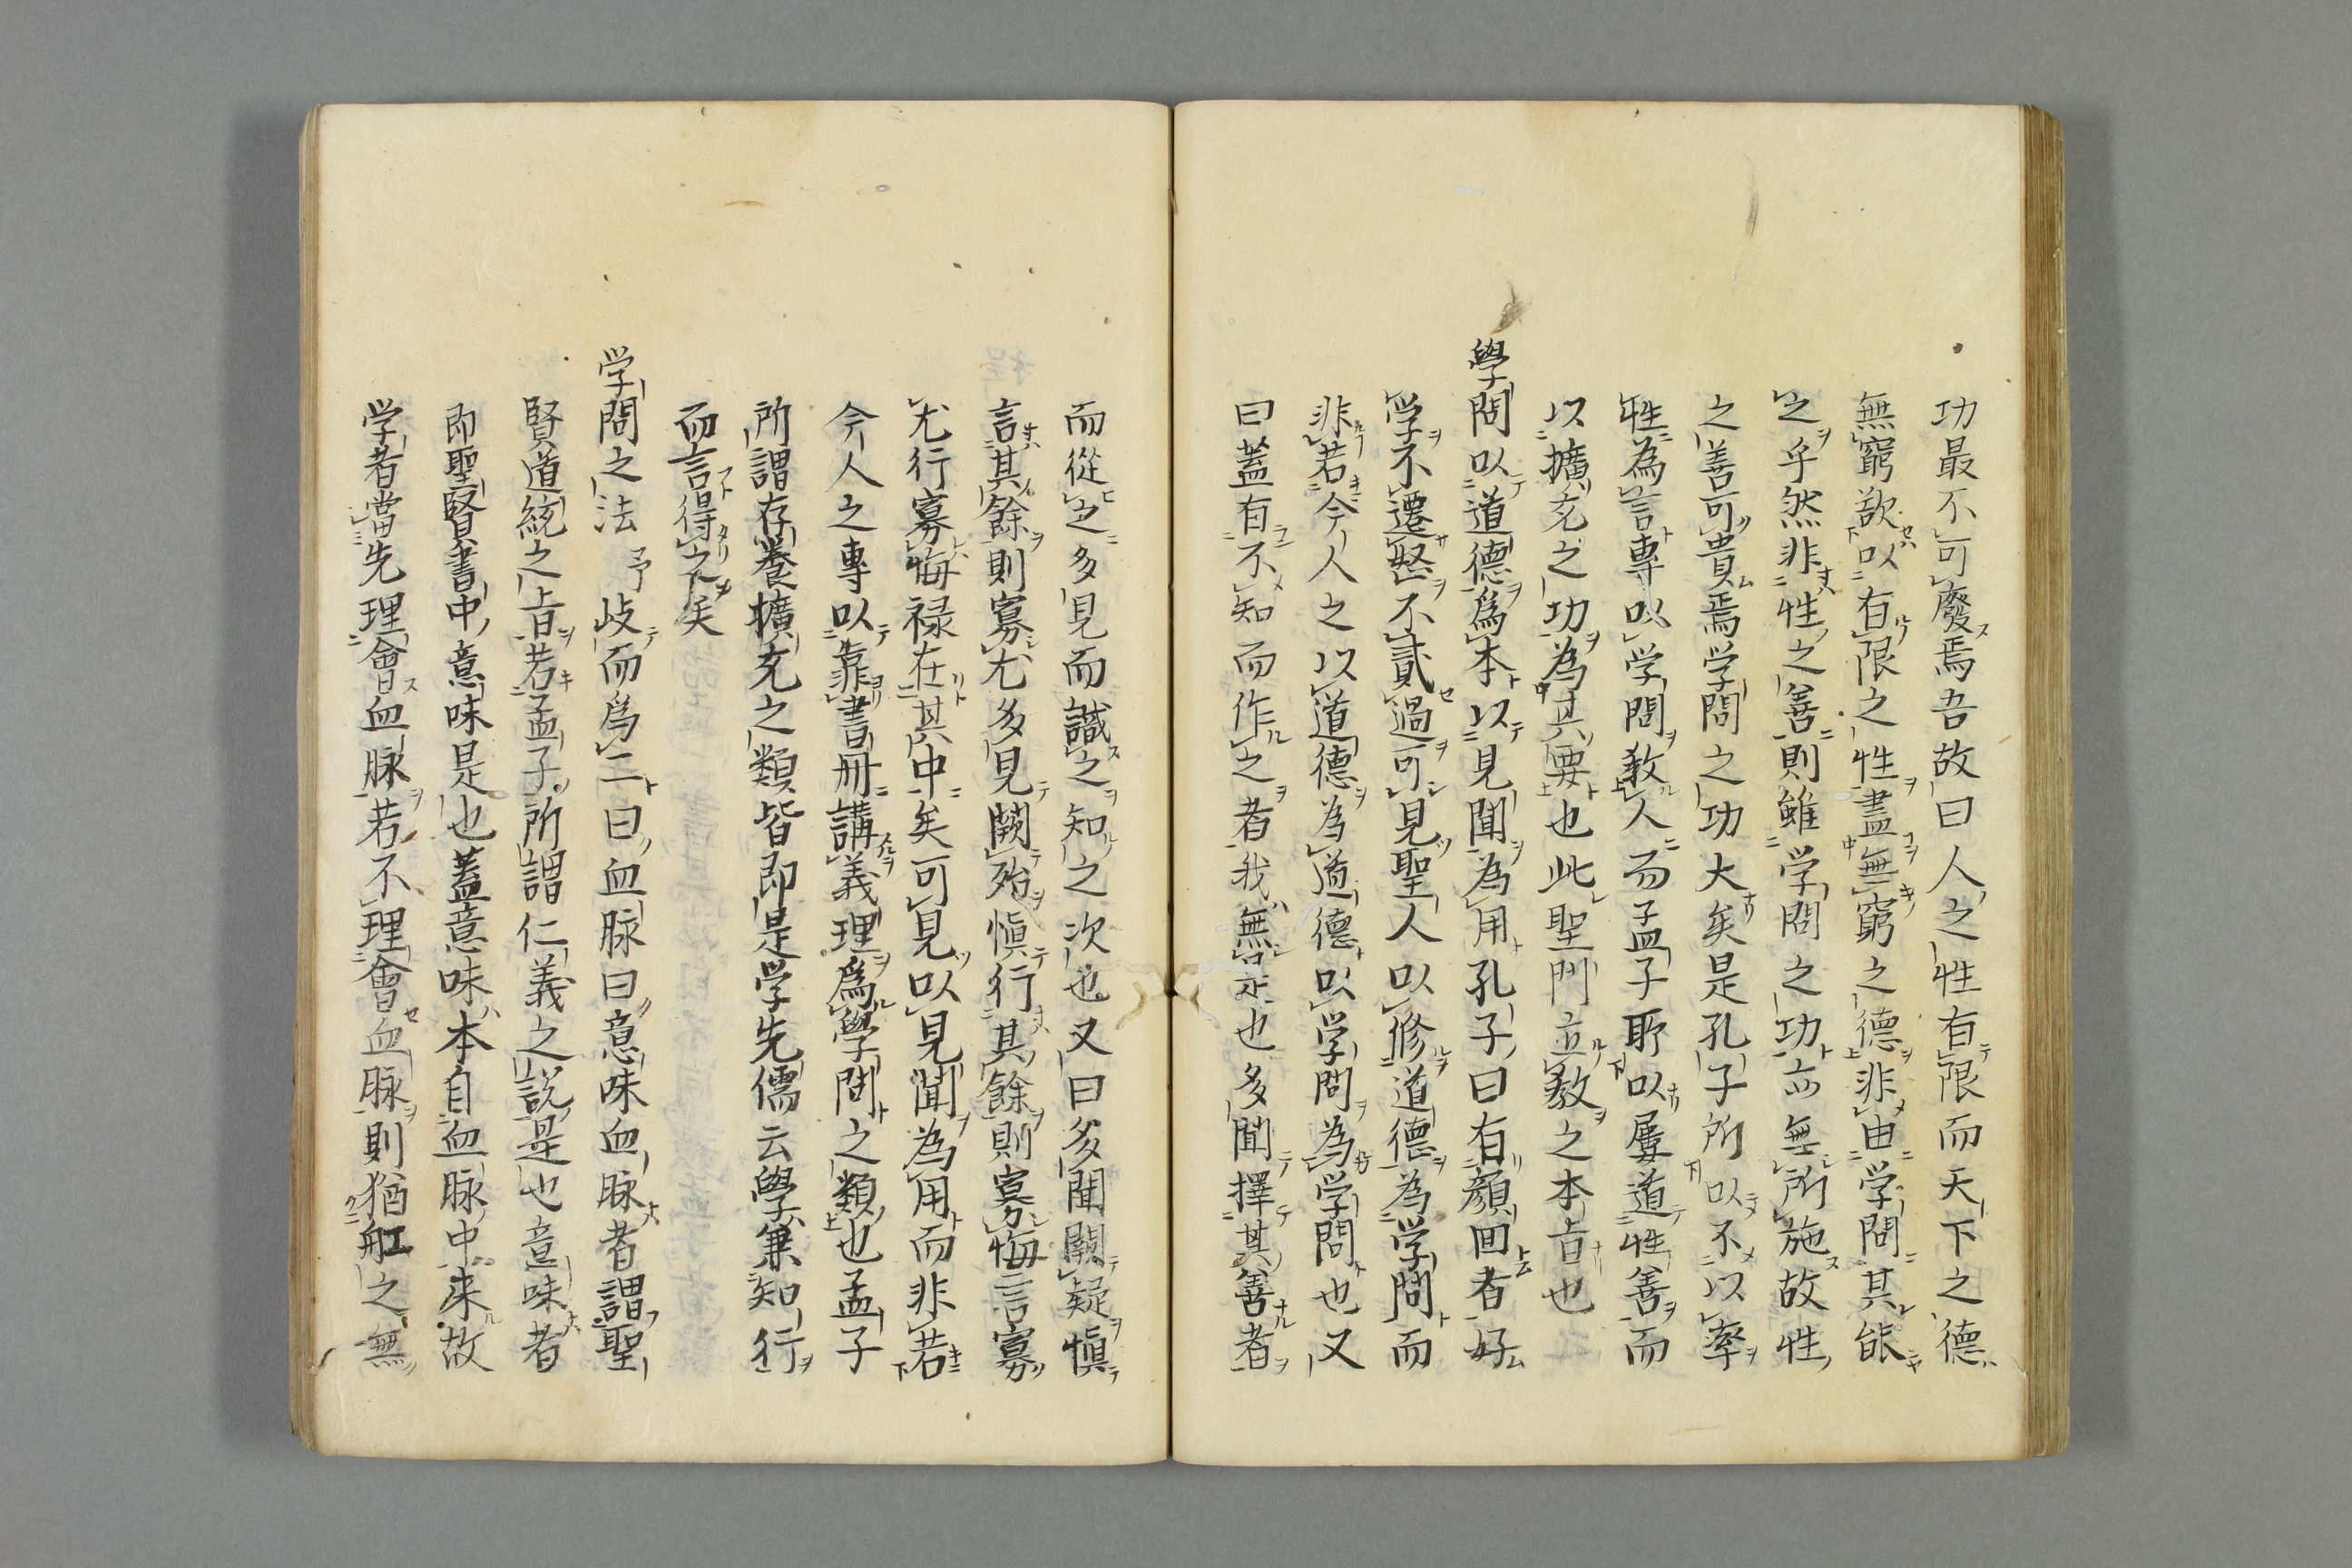 功最不可廢焉吾故曰人之性有限而天下之德
無窮欲以有限之性盡無窮之德非由学問其能
之乎然非性之善則雖学問之功亦無所施故性
之善可貴焉学問之功大矣是孔子所以不以率
性為言專以学問教人而孟子耶以屢道性善而
以擴充之功為其要也此聖門立教之本旨也
學問以道德爲本以見聞為用孔子曰有顔回者好
学不遷怒不貳過可見聖人以修道德為学問而
非若今人之以道德為道德以学問為学問也又
曰蓋有不知而作之者我無是也多聞擇其善者
而從之多見而識之知之次也又曰多聞闕疑慎
言其餘則寡尤多見闕殆慎行其餘則寡悔言寡
尤行寡悔禄在其中矣可見以見聞為用而非若
今人之專以靠書冊講義理爲學問之類也孟子
所謂存養擴充之類皆即是学先儒云學兼知行
而言得之矣
学問之法予歧而爲二曰血脉曰意味血脉者謂聖
賢道統之旨若孟子所謂仁義之説是也意味者
即聖賢書中意味是也蓋意味本自血脉中来故
学者當先理會血脉若不理會血脉則猶舩之無